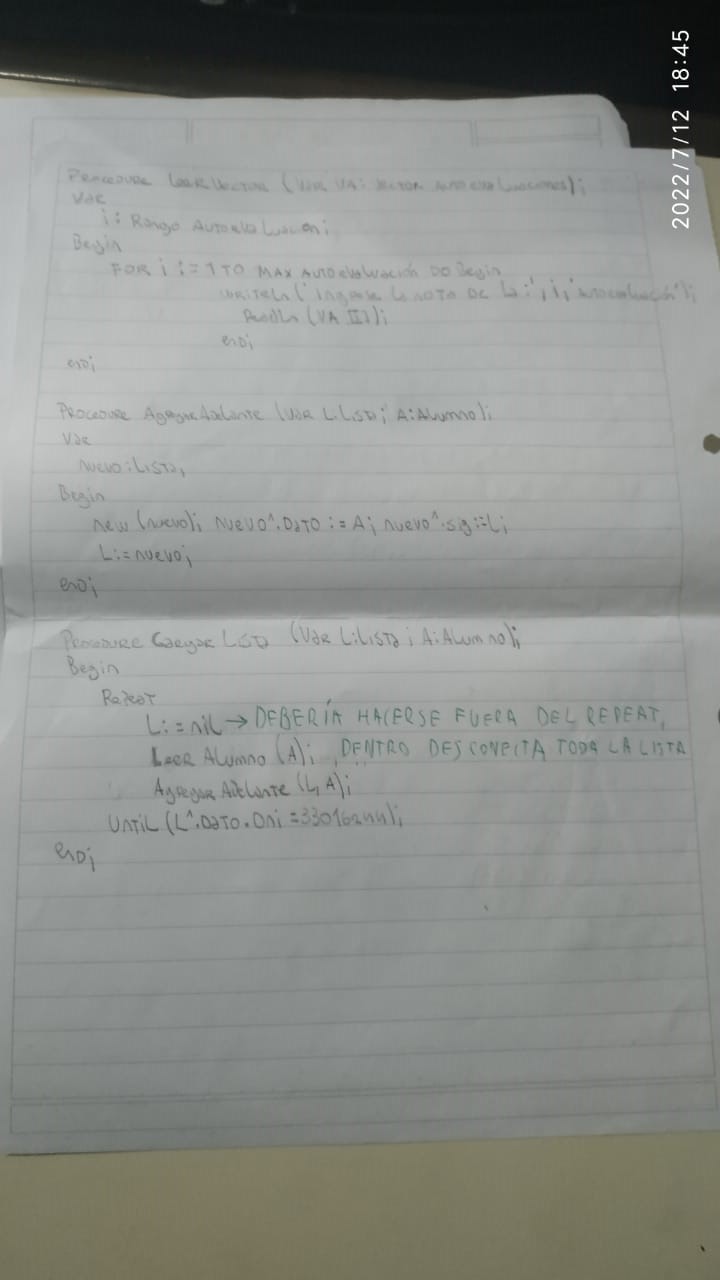 2022/7/12 18:45
Procedure LeerVector (var VA: vector autoevaluaciones);
Var
i: Rango Autoevaluacion;
Begin
FOR i := 1 TO MAX AUTOevaluación DO Begin
writeln ('Ingrese la nota de la:', i, 'autoevaluación');
Readln (VA [I]);
end;
end;
Procedure AgregarAdelante (VAR L:Lista; A:Alumno);
Var
nuevo:Lista,
Begin
new (nuevo); nuevo^.Dato := A; nuevo^.sig:=L;
L:=nuevo;
end;
Procedure Cargar Lista (Var L:Lista; A:Alumno);
Begin
Repeat
L:=nil → DEBERÍA HACERSE FUERA DEL REPEAT,
Leer Alumno (A); DENTRO DESCONECTA TODA LA LISTA
Agregar Adelante (L,A);
Until (L^.Dato.Dni =33016244);
end;